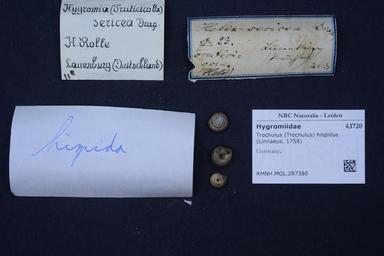 Hygromia (Fruticicola)
sericea Drap.
H. Rolle
Lauenburg (Deutschland)
11e
Helix sericea
23.
hispida
NBC Naturalis - Leiden
Hygromiidae 43720
Trochulus (Trochulus) hispidus
(Linnaeus, 1758)
Germany,
RMNH.MOL.297380